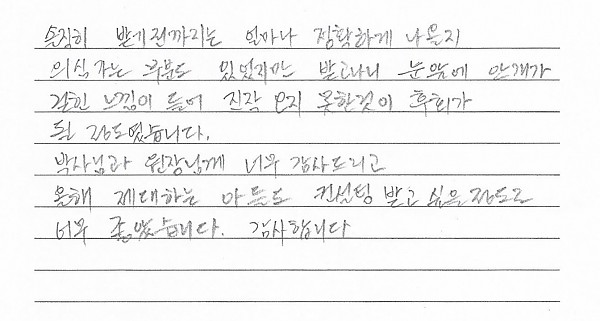 솔직히 받기전까지는 얼마나 정확하게 나올지
의식가는 부분도 있었지만 받고나니 눈앞에 안개가
걷힌 느낌이 들어 진작 오지 못한것이 후회가
될 정도였습니다.
박사님과 원장님께 너무 감사드리고
올해 제대하는 아들도 컨설팅 받고 싶을 정도로
너무 좋았습니다. 감사합니다